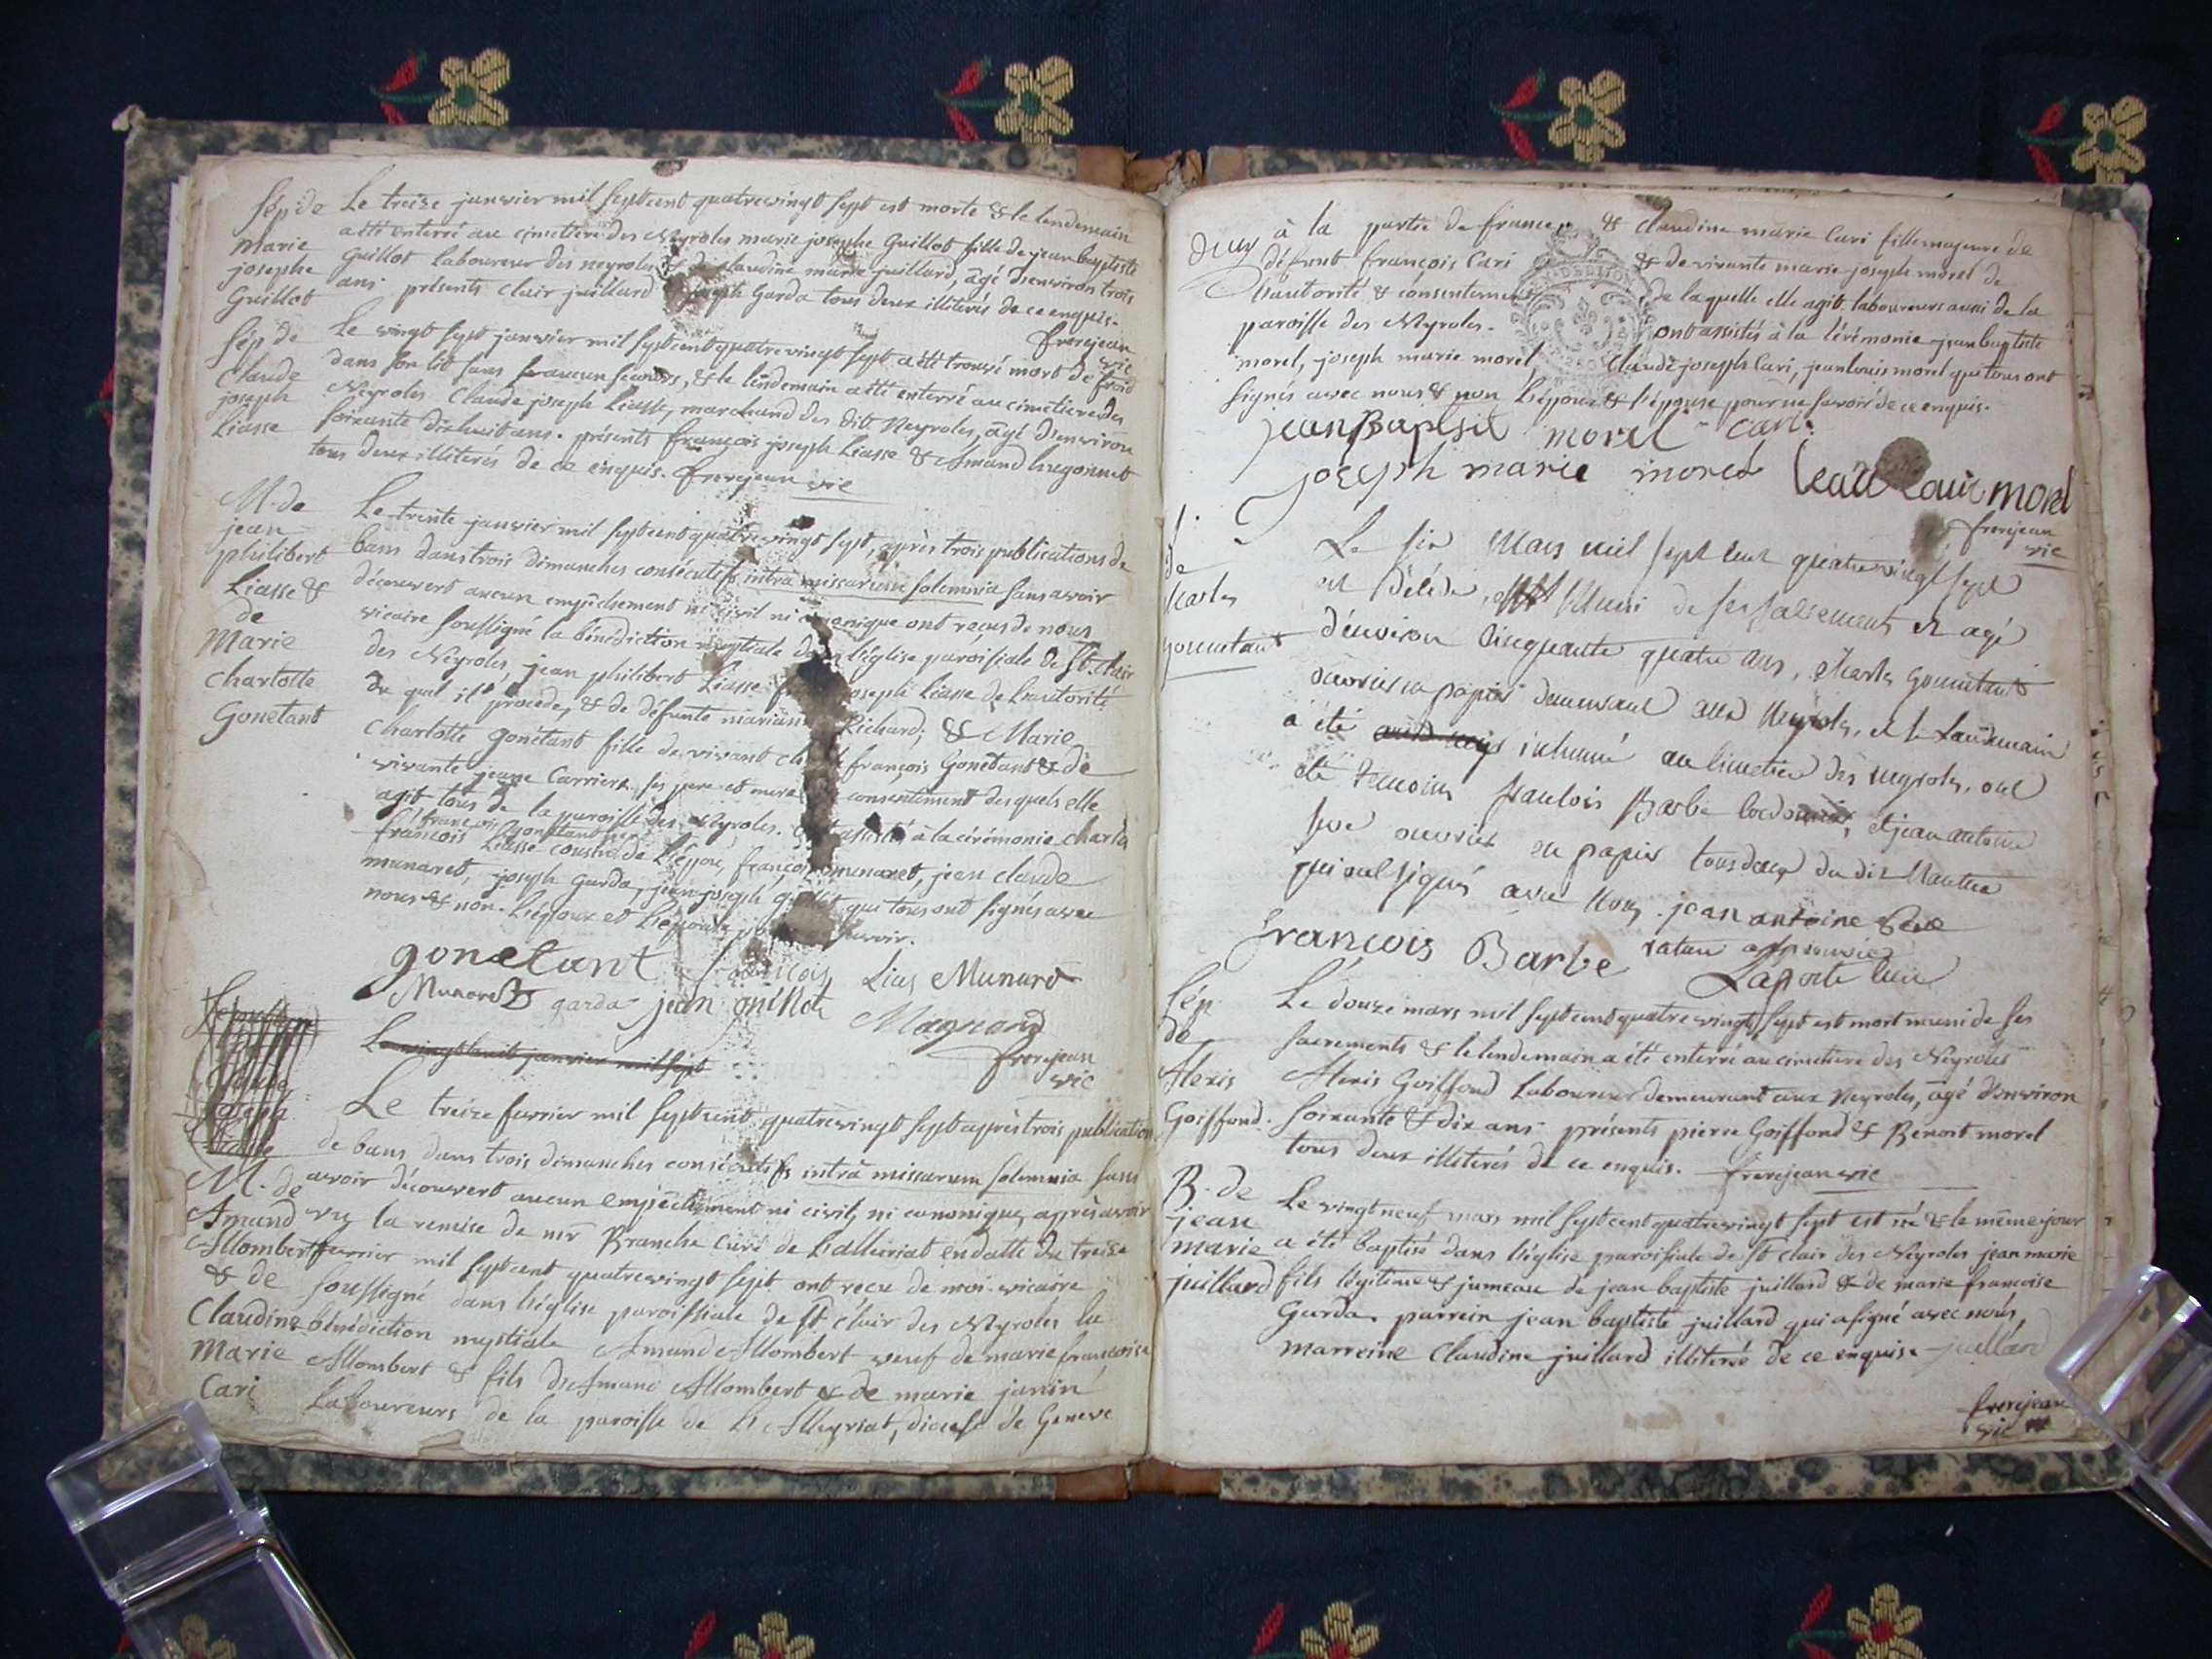 Sép de Le treize janvier mil septcent quatrevingt sept est morte & le lendemain
marie a été enterré au cimetière des Neyroles marie josephe Guillot fille de jean baptiste
josephe Guillot laboureur des neyroles & de claudine marie juillard, agé d'environ trois
Guillot ans présents clair juillard joseph Garda tous deux illiterés de ce enquis.
frerejean vic
Sép de Le vingt sept janvier mil septcent quatrevingt sept a été trouvé mort de froid
Claude dans son lit sans aucun secours, & le lendemain a été enterré au cimetiere des
joseph Neyroles Claude joseph Liasse, marchand des dits Neyroles, agé d'environ
Liasse soixante dixhuit ans. présents françois joseph Liasse & Amand
tous deux illiterés de ce enquis. frerejean vic
M. de Le trente janvier mil septcent quatrevingt sept, après trois publications de
jean bans dans trois dimanches consécutifs intrà missarum solemnia sans avoir
philibert découvert aucun empêchement ni civil ni canonique ont recus de nous
Liasse & vicaire soussigné la bénédiction nuptiale dans l'église paroissiale de St. clair
de des Neyroles, jean philibert Liasse joseph Liasse de l'autorité
Marie du quel il procede, & de défunte Richard; & Marie
charlotte charlotte gonétant fille de vivant françois Gonétant & de
Gonétant vivante jeane Carrier ses pere et mere consentiment desquels elle
agit tous de la paroisse des Neyroles. ont assistés à la cérémonie charle
françois gonétant
françois Liasse cousin de l'époux, françois munaret, jean claude
munaret, joseph Garda, jean joseph qui tous ont signés avec
nous & non l'époux et l'épouse savoir.
gonetant françois Lias Munard
Munaret garda jean
Magnand
frerejean
vic
Le vingt huit janvier mil sept
Claude
joseph
Liasse
Le treize fevrier mil septcent quatrevingt sept après trois publication
de bans dans trois dimanches consécutifs intrà missarum solemnia sans
M. de avoir découvert aucun empêchement ni civil, ni canonique, après avoir
Amand vu la remise de mr Branche curé de Lalleiriat en datte du treize
Allombert fevrier mil septcent quatrevingt sept ont reçu de moi vicaire
& de soussigné dans l'église paroissiale de St clair des Neyroles la
Claudine bénédiction nuptiale Amand Allombert veuf de marie françoise
Marie Allombert & fils d'Amand Allombert & de marie janin
Cari Laboureurs de la paroisse de L'Alleyriat, diocese de Geneve
deux à la partie de france & claudine marie Cari fille majeure de
défunt françois Cari & de vivante marie joseph morel de
l'autorité & consentement de laquelle elle agit laboureurs aussi de la
paroisse des Neyroles. ont assistés à la cérémonie jean baptiste
morel, joseph marie morel, claude joseph Cari, jean louis morel qui tous ont
signés avec nous & non l'époux & l'épouse pour ne savoir de ce enquis.
jean Baptiste morel cari
joseph marie morel jean Louis morel
frerejean
vic
Le six Mars mil sept cent quatrevingt sept
de est Décédé, Muni de ses sacrements et agé
charles d'environ cinquante quatre ans, charles
ouvrier en papier demeurant aux Neyroles, et le Landemain
a été inhumé au cimetiere des neyroles, ont
été temoins françois Barbe cordonnier, et jean antoine
ouvrier en papier tous deux du dit Nantua
qui ont signés avec Nous. jean antoine
françois Barbe rature approuvée
Laporte curé
Sép. Le douze mars mil septcent quatrevingt sept est mort muni de ses
de sacrements & le lendemain a été enterré au cimetiere des Neyroles
Alexis Alexis Goiffond Laboureur demeurant aux Neyroles, agé d'environ
Goiffond. soixante & dix ans présents pierre Goiffond & Benoit morel
tous deux illiterés de ce enquis. frerejean vic
B. de Le vingtneuf mars mil septcent quatrevingt sept est né & le même jour
jean a été baptisé dans l'église paroissiale de St clair des Neyroles jean marie
marie fils légitime & jumeau de jean baptiste juillard & de marie francoise
juillard Garda. parrein jean baptiste juillard qui a signé avec nous,
marreine Claudine juillard illiterée de ce enquise juillard
frerejean
vic